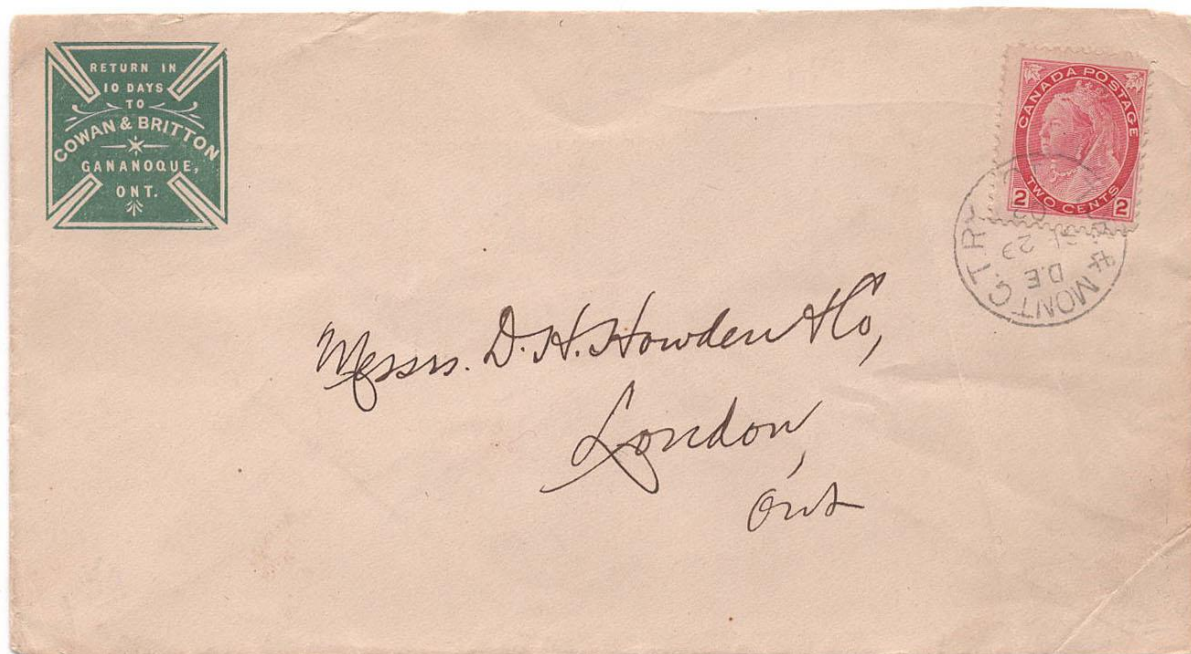 RETURN IN
10 DAYS
TO
COWAN & BRITTON
GANANOQUE,
ONT.
CANADA POSTAGE
2 TWO CENTS 2
& MONT G.T.R.
D.E
Messrs. D. H. Howden & Co,
London,
Ont